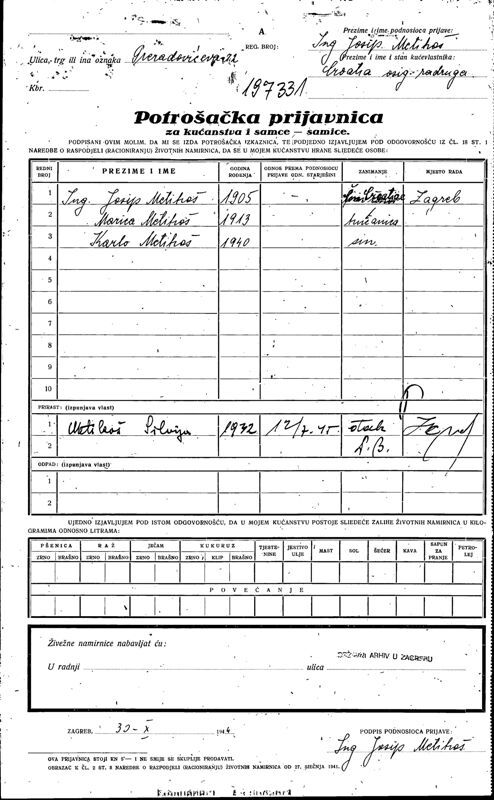 A
Prezime i ime podnosioca prijave:
Ing Josip Metikoš
Ulica, trg ili ina oznaka Preradovićeva
REG. BROJ:
Prezime i ime i stan kućevlastnika:
Croatia osig. zadruga
Kbr.
197331
Potrošačka prijavnica
za kućanstva i samce — šamice.
PODPISANI OVIM MOLIM, DA MI SE IZDA POTROŠAČKA IZKAZNICA, TE PODJEDNO IZJAVLJUJEM POD ODGOVORNOŠĆU IZ ČL. 18 ST. 1
NAREDBE O RASPODJELI (RACIONIRANJU) ŽIVOTNIH NAMIRNICA, DA SE U MOJEM KUĆANSTVU HRANE SLJEDEĆE OSOBE:
REDNI BROJ PREZIME I IME GODINA RODJENJA ODNOS PREMA PODNOSIOCU PRIJAVE ODN. STARJEŠINI ZANIMANJE MJESTO RADA
1 Ing. Josip Metikoš 1905 - Croatiae Zagreb
2 Marica Metikoš 1913 kućanica
3 Karlo Metikoš 1940 sin
4
5
6
7
8
9
10
PRIRAST: (izpunjava vlast)
1 Metikoš Silvija 1932
2
ODPAD: (izpunjava vlast)
1
2
UJEDNO IZJAVLJUJEM POD ISTOM ODGOVORNOŠĆU, DA U MOJEM KUĆANSTVU POSTOJE SLJEDEĆE ZALIHE ŽIVOTNIH NAMIRNICA U KILO-
GRAMIMA ODNOSNO LITRAMA:
PŠENICA RAŽ JEČAM KUKURUZ TJESTE-NINE JESTIVO ULJE MAST SOL ŠEĆER KAVA SAPUN ZA PRANJE PETRO-LEJ
ZRNO BRAŠNO ZRNO BRAŠNO ZRNO BRAŠNO ZRNO KLIP BRAŠNO
POVEĆANJE
Živežne namirnice nabavljat ću:
DRŽAVNI ARHIV U ZAGREBU
U radnji ulica
ZAGREB, 30-X 1944
PODPIS PODNOSIOCA PRIJAVE:
Ing Josip Metikoš
OVA PRIJAVNICA STOJI KN 5— I NE SMIJE SE SKUPLJE PRODAVATI.
OBRAZAC K ČL. 2 ST. 8 NAREDBE O RASPODJELI (RACIONIRANJU) ŽIVOTNIH NAMIRNICA OD 27. SIEČNJA 1941.